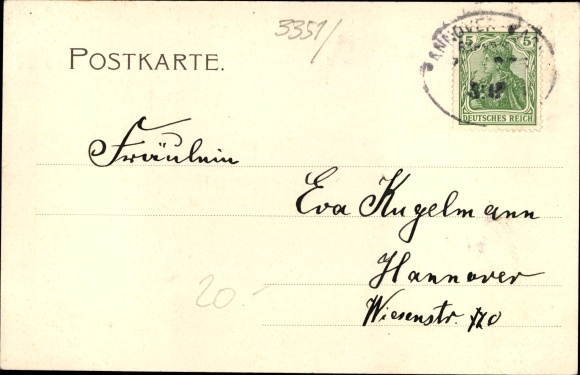 3351/
POSTKARTE.
HANNOVER
5 5
DEUTSCHES REICH
Fräulein
Eva Kugelmann
Hannover
Wiesenstr.
20.-